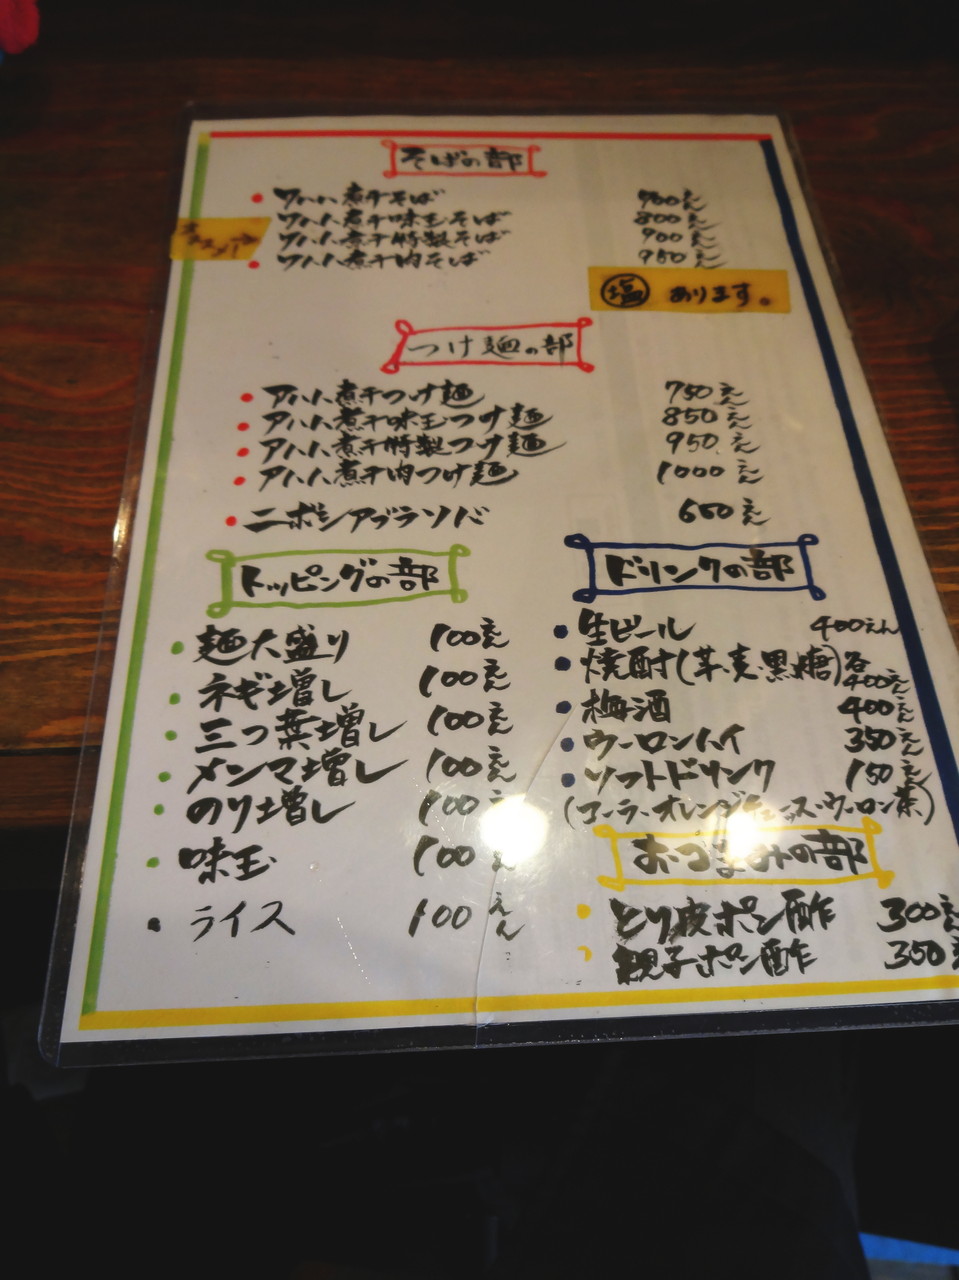 そばの部
ワハハ煮干そば 700えん
ワハハ煮干味玉そば 800えん
ワハハ煮干特製そば 900えん
オススメ!
ワハハ煮干肉そば 950えん
塩 あります。
つけ麺の部
アハハ煮干つけ麺 750えん
アハハ煮干味玉つけ麺 850えん
アハハ煮干特製つけ麺 950えん
アハハ煮干肉つけ麺 1000えん
ニボシアブラソバ 600えん
トッピングの部
麺大盛り 100えん
ネギ増し 100えん
三つ葉増し 100えん
メンマ増し 100えん
のり増し 100えん
味玉 100えん
ライス 100えん
ドリンクの部
生ビール 400えん
焼酎(芋・麦・黒糖)各400えん
梅酒 400えん
ウーロンハイ 350えん
ソフトドリンク 150えん
(コーラ・オレンジジュース・ウーロン茶)
おつまみの部
とり皮ポン酢 300え
親子ポン酢 350え